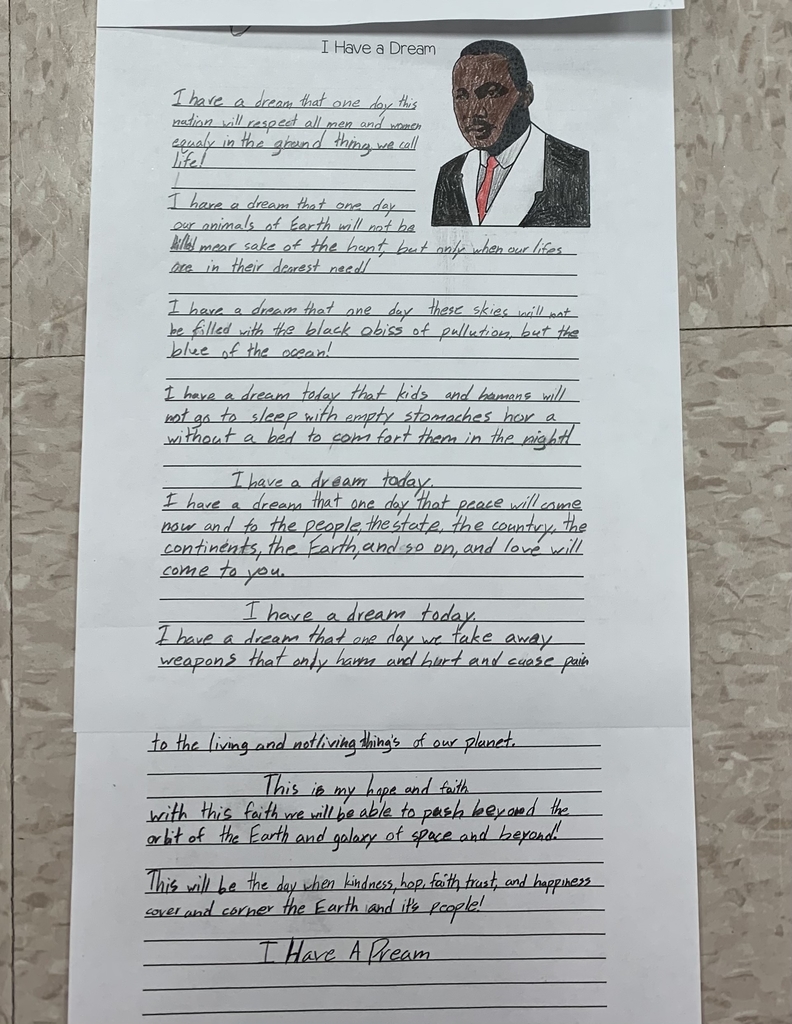 I Have a Dream
I have a dream that one day this
nation will respect all men and women
equaly in the ground thing, we call
life!
I have a dream that one day
our animals of Earth will not be
mear sake of the hunt, but only when our lifes
are in their dearest need!
I have a dream that one day these skies will not
be filled with the black abiss of pullution, but the
blue of the ocean!
I have a dream today that kids and humans will
not go to sleep with empty stomaches a
without a bed to comfort them in the night!
I have a dream today.
I have a dream that one day that peace will come
now and to the people, the state, the country, the
continents, the Earth, and so on, and love will
come to you.
I have a dream today.
I have a dream that one day we take away
weapons that only harm and hurt and cuase pain
to the living and notliving thing's of our planet.
This is my hope and faith
with this faith we will be able to push beyond the
orbit of the Earth and galaxy of space and beyond!
This will be the day when kindness, hop, faith, trust, and happiness
cover and corner the Earth and it's people!
I Have A Dream